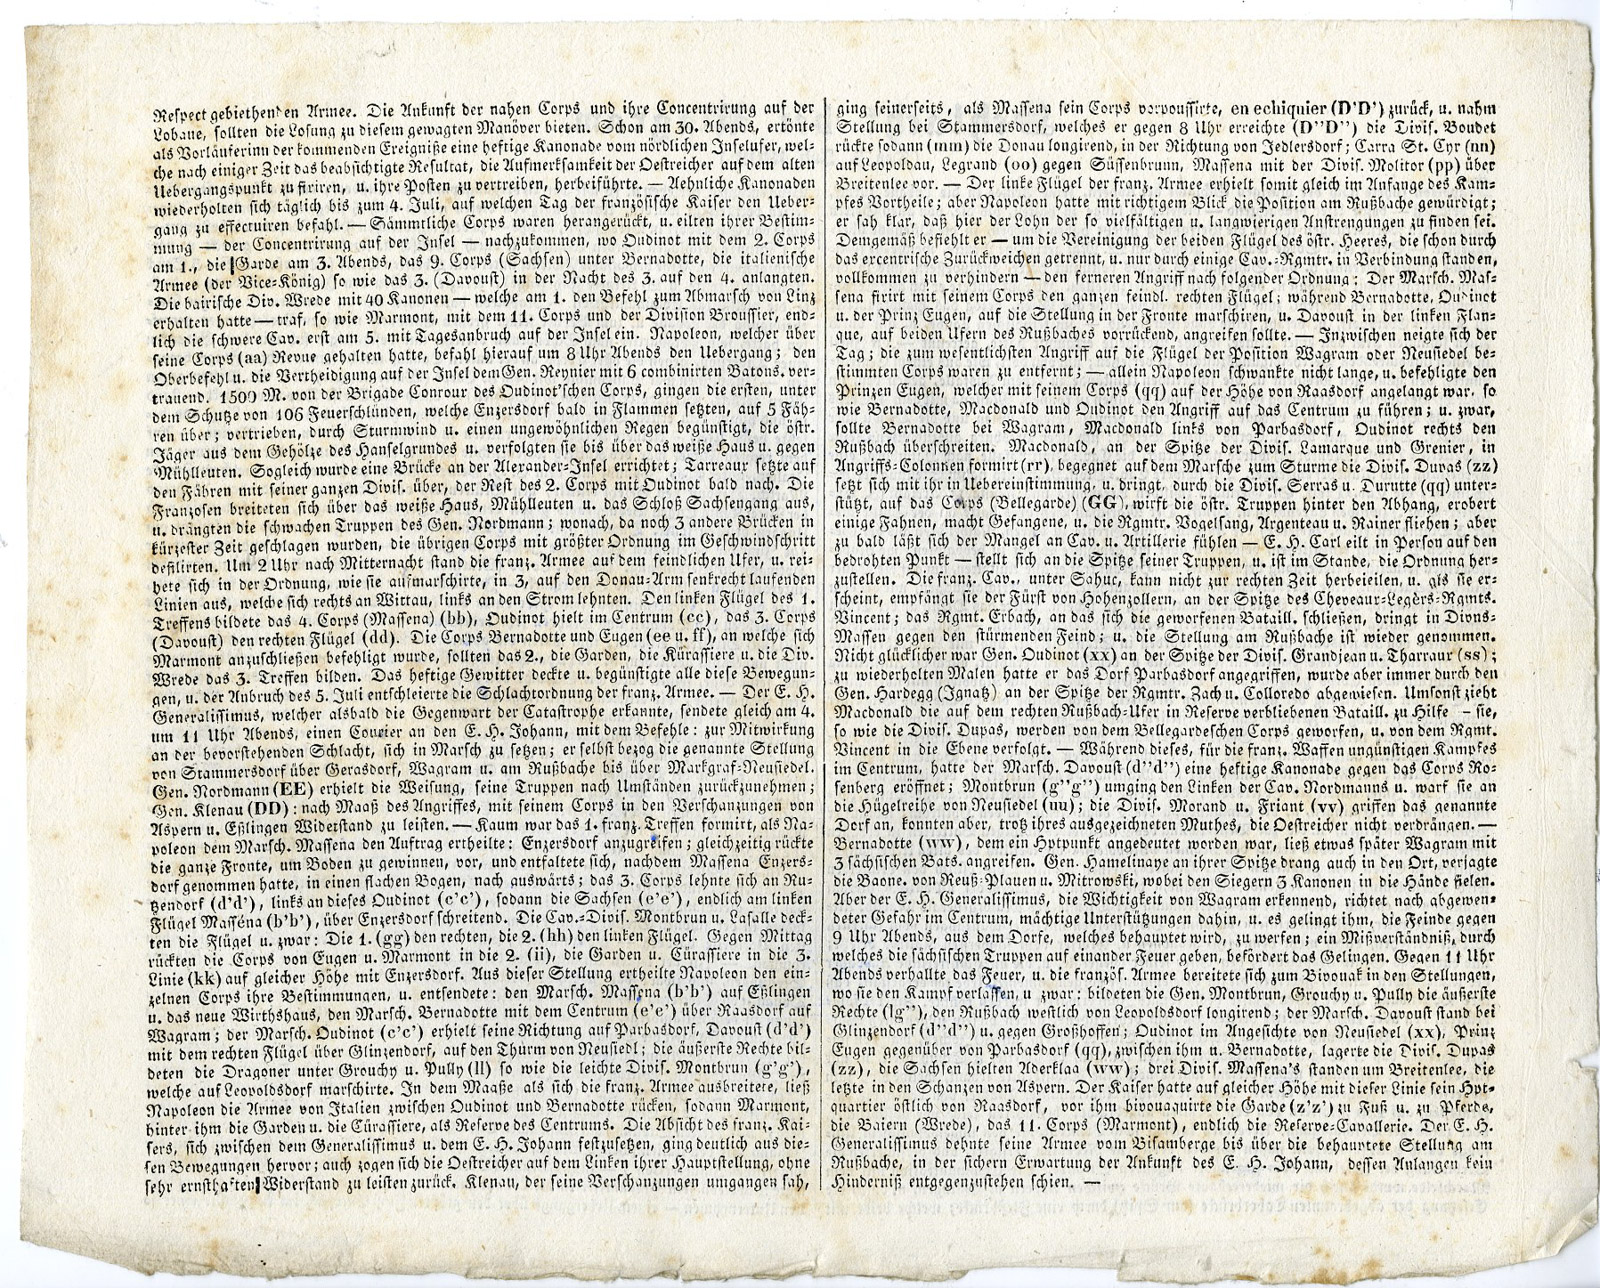 Respect gebiethenden Armee. Die Ankunft der nahen Corps und ihre Concentrirung auf der
Lobaue, sollten die Losung zu diesem gewagten Manöver bieten. Schon am 30. Abends, ertönte
als Vorläuferinn der kommenden Ereigniße eine heftige Kanonade vom nördlichen Inselufer, wel-
che nach einiger Zeit das beabsichtigte Resultat, die Aufmerksamkeit der Oestreicher auf dem alten
Uebergangspunkt zu firiren, u. ihre Posten zu vertreiben, herbeiführte. — Aehnliche Kanonaden
wiederholten sich täglich bis zum 4. Juli, auf welchen Tag der französische Kaiser den Ueber-
gang zu effectuiren befahl. — Sämmtliche Corps waren herangerückt, u. eilten ihrer Bestim-
mung — der Concentrirung auf der Insel — nachzukommen, wo Oudinot mit dem 2. Corps
am 1., die Garde am 3. Abends, das 9. Corps (Sachsen) unter Bernadotte, die italienische
Armee (der Vice-König) so wie das 3. (Davoust) in der Nacht des 3. auf den 4. anlangten.
Die bairische Div. Wrede mit 40 Kanonen — welche am 1. den Befehl zum Abmarsch von Linz
erhalten hatte — traf, so wie Marmont, mit dem 11. Corps und der Division Broussier, end-
lich die schwere Cav. erst am 5. mit Tagesanbruch auf der Insel ein. Napoleon, welcher über
seine Corps (aa) Revue gehalten hatte, befahl hierauf um 8 Uhr Abends den Uebergang; den
Oberbefehl u. die Vertheidigung auf der Insel dem Gen. Reynier mit 6 combinirten Batons. ver-
trauend. 1500 M. von der Brigade Conrour des Oudinot'schen Corps, gingen die ersten, unter
dem Schutze von 106 Feuerschlünden, welche Enzersdorf bald in Flammen setzten, auf 5 Fäh-
ren über; vertrieben, durch Sturmwind u. einen ungewöhnlichen Regen begünstigt, die östr.
Jäger aus dem Gehölze des Hanselgrundes u. verfolgten sie bis über das weiße Haus u. gegen
Mühlleuten. Sogleich wurde eine Brücke an der Alexander-Insel errichtet; Tarreaur setzte auf
den Fähren mit seiner ganzen Divis. über, der Rest des 2. Corps mit Oudinot bald nach. Die
Franzosen breiteten sich über das weiße Haus, Mühlleuten u. das Schloß Sachsengang aus,
u. drängten die schwachen Truppen des Gen. Nordmann; wonach, da noch 3 andere Brücken in
kürzester Zeit geschlagen wurden, die übrigen Corps mit größter Ordnung im Geschwindschritt
defilirten. Um 2 Uhr nach Mitternacht stand die franz. Armee auf dem feindlichen Ufer, u. rei-
hete sich in der Ordnung, wie sie aufmarschirte, in 3, auf den Donau-Arm senkrecht laufenden
Linien aus, welche sich rechts an Wittau, links an den Strom lehnten. Den linken Flügel des 1.
Treffens bildete das 4. Corps (Massena) (bb), Oudinot hielt im Centrum (cc), das 3. Corps
(Davoust) den rechten Flügel (dd). Die Corps Bernadotte und Eugen (ee u. ff), an welche sich
Marmont anzuschließen befehligt wurde, sollten das 2., die Garden, die Kürassiere u. die Div.
Wrede das 3. Treffen bilden. Das heftige Gewitter deckte u. begünstigte alle diese Bewegun-
gen, u. der Anbruch des 5. Juli entschleierte die Schlachtordnung der franz. Armee. — Der E. H.
Generalissimus, welcher alsbald die Gegenwart der Catastrophe erkannte, sendete gleich am 4.
um 11 Uhr Abends, einen Courier an den E. H. Johann, mit dem Befehle: zur Mitwirkung
an der bevorstehenden Schlacht, sich in Marsch zu setzen; er selbst bezog die genannte Stellung
von Stammersdorf über Gerasdorf, Wagram u. am Rußbache bis über Markgraf-Neusiedel.
Gen. Nordmann (EE) erhielt die Weisung, seine Truppen nach Umständen zurückzunehmen;
Gen. Klenau (DD): nach Maaß des Angriffes, mit seinem Corps in den Verschanzungen von
Aspern u. Eßlingen Widerstand zu leisten. — Kaum war das 1. franz. Treffen formirt, als Na-
poleon dem Marsch. Massena den Auftrag ertheilte: Enzersdorf anzugreifen; gleichzeitig rückte
die ganze Fronte, um Boden zu gewinnen, vor, und entfaltete sich, nachdem Massena Enzers-
dorf genommen hatte, in einen flachen Bogen, nach auswärts; das 3. Corps lehnte sich an Ru-
tzendorf (d'd'), links an dieses Oudinot (c'c'), sodann die Sachsen (e'e'), endlich am linken
Flügel Masséna (b'b'), über Enzersdorf schreitend. Die Cav.-Divis. Montbrun u. Lasalle deck-
ten die Flügel u. zwar: Die 1. (gg) den rechten, die 2. (hh) den linken Flügel. Gegen Mittag
rückten die Corps von Eugen u. Marmont in die 2. (ii), die Garden u. Cürassiere in die 3.
Linie (kk) auf gleicher Höhe mit Enzersdorf. Aus dieser Stellung ertheilte Napoleon den ein-
zelnen Corps ihre Bestimmungen, u. entsendete: den Marsch. Massena (b'b') auf Eßlingen
u. das neue Wirthshaus, den Marsch. Bernadotte mit dem Centrum (e'e') über Raasdorf auf
Wagram; der Marsch. Oudinot (c'c') erhielt seine Richtung auf Parbasdorf, Davoust (d'd')
mit dem rechten Flügel über Glinzendorf, auf den Thurm von Neusiedl; die äußerste Rechte bil-
deten die Dragoner unter Grouchy u. Pully (ll) so wie die leichte Divis. Montbrun (g'g'),
welche auf Leopoldsdorf marschirte. In dem Maaße als sich die franz. Armee ausbreitete, ließ
Napoleon die Armee von Italien zwischen Oudinot und Bernadotte rücken, sodann Marmont,
hinter ihm die Garden u. die Cürassiere, als Reserve des Centrums. Die Absicht des franz. Kai-
sers, sich zwischen dem Generalissimus u. dem E. H. Johann festzusetzen, ging deutlich aus die-
sen Bewegungen hervor; auch zogen sich die Oestreicher auf dem Linken ihrer Hauptstellung, ohne
sehr ernsthaften Widerstand zu leisten zurück. Klenau, der seine Verschanzungen umgangen sah,
ging seinerseits, als Massena sein Corps vorpoussirte, en echiquier (D'D') zurück, u. nahm
Stellung bei Stammersdorf, welches er gegen 8 Uhr erreichte (D''D'') die Divis. Boudet
rückte sodann (mm) die Donau longirend, in der Richtung von Jedlersdorf; Carra St. Cyr (nn)
auf Leopoldau, Legrand (oo) gegen Süssenbrunn, Massena mit der Divis. Molitor (pp) über
Breitenlee vor. — Der linke Flügel der franz. Armee erhielt somit gleich im Anfange des Kam-
pfes Vortheile; aber Napoleon hatte mit richtigem Blick die Position am Rußbache gewürdigt;
er sah klar, daß hier der Lohn der so vielfältigen u. langwierigen Anstrengungen zu finden sei.
Demgemäß befiehlt er — um die Vereinigung der beiden Flügel des östr. Heeres, die schon durch
das ercentrische Zurückweichen getrennt, u. nur durch einige Cav.-Rgmtr. in Verbindung standen,
vollkommen zu verhindern — den ferneren Angriff nach folgender Ordnung: Der Marsch. Mas-
sena firirt mit seinem Corps den ganzen feindl. rechten Flügel; während Bernadotte, Oudinot
u. der Prinz Eugen, auf die Stellung in der Fronte marschiren, u. Davoust in der linken Flan-
que, auf beiden Ufern des Rußbaches vorrückend, angreifen sollte. — Inzwischen neigte sich der
Tag; die zum wesentlichsten Angriff auf die Flügel der Position Wagram oder Neusiedel be-
stimmten Corps waren zu entfernt; — allein Napoleon schwankte nicht lange, u. befehligte den
Prinzen Eugen, welcher mit seinem Corps (qq) auf der Höhe von Raasdorf angelangt war, so
wie Bernadotte, Macdonald und Oudinot den Angriff auf das Centrum zu führen; u. zwar,
sollte Bernadotte bei Wagram, Macdonald links von Parbasdorf, Oudinot rechts den
Rußbach überschreiten. Macdonald, an der Spitze der Divis. Lamarque und Grenier, in
Angriffs-Colonnen formirt (rr), begegnet auf dem Marsche zum Sturme die Divis. Dupas (zz)
setzt sich mit ihr in Uebereinstimmung, u. dringt, durch die Divis. Serras u. Durutte (qq) unter-
stützt, auf das Corps (Bellegarde) (GG), wirft die östr. Truppen hinter den Abhang, erobert
einige Fahnen, macht Gefangene, u. die Rgmtr. Vogelsang, Argenteau u. Rainer fliehen; aber
zu bald läßt sich der Mangel an Cav. u. Artillerie fühlen — E. H. Carl eilt in Person auf den
bedrohten Punkt — stellt sich an die Spitze seiner Truppen, u. ist im Stande, die Ordnung her-
zustellen. Die franz. Cav., unter Sahuc, kann nicht zur rechten Zeit herbeieilen, u. als sie er-
scheint, empfängt sie der Fürst von Hohenzollern, an der Spitze des Cheveaur-Legèrs-Rgmts.
Vincent; das Rgmt. Erbach, an das sich die geworfenen Bataill. schließen, dringt in Divns-
Massen gegen den stürmenden Feind; u. die Stellung am Rußbache ist wieder genommen.
Nicht glücklicher war Gen. Oudinot (xx) an der Spitze der Divis. Grandjean u. Tharraur (ss);
zu wiederholten Malen hatte er das Dorf Parbasdorf angegriffen, wurde aber immer durch den
Gen. Hardegg (Ignatz) an der Spitze der Rgmtr. Zach u. Colloredo abgewiesen. Umsonst zieht
Macdonald die auf dem rechten Rußbach-Ufer in Reserve verbliebenen Bataill. zu Hilfe – sie,
so wie die Divis. Dupas, werden von dem Bellegardeschen Corps geworfen, u. von dem Rgmt.
Vincent in die Ebene verfolgt. — Während dieses, für die franz. Waffen ungünstigen Kampfes
im Centrum, hatte der Marsch. Davoust (d''d'') eine heftige Kanonade gegen das Corps Ro-
senberg eröffnet; Montbrun (g''g'') umging den Linken der Cav. Nordmanns u. warf sie an
die Hügelreihe von Neusiedel (uu); die Divis. Morand u. Friant (vv) griffen das genannte
Dorf an, konnten aber, trotz ihres ausgezeichneten Muthes, die Oestreicher nicht verdrängen. —
Bernadotte (ww), dem ein Hptpunkt angedeutet worden war, ließ etwas später Wagram mit
3 sächsischen Bats. angreifen. Gen. Hamelinaye an ihrer Spitze drang auch in den Ort, verjagte
die Baone. von Reuß-Plauen u. Mitrowski, wobei den Siegern 3 Kanonen in die Hände fielen.
Aber der E. H. Generalissimus, die Wichtigkeit von Wagram erkennend, richtet nach abgewen-
deter Gefahr im Centrum, mächtige Unterstützungen dahin, u. es gelingt ihm, die Feinde gegen
9 Uhr Abends, aus dem Dorfe, welches behauptet wird, zu werfen; ein Mißverständniß, durch
welches die sächsischen Truppen auf einander Feuer geben, befördert das Gelingen. Gegen 11 Uhr
Abends verhallte das Feuer, u. die französ. Armee bereitete sich zum Bivouak in den Stellungen,
wo sie den Kampf verlassen, u zwar: bildeten die Gen. Montbrun, Grouchy u. Pully die äußerste
Rechte (lg''), den Rußbach westlich von Leopoldsdorf longirend; der Marsch. Davoust stand bei
Glinzendorf (d''d'') u. gegen Großhoffen; Oudinot im Angesichte von Neusiedel (xx), Prinz
Eugen gegenüber von Parbasdorf (qq), zwischen ihm u. Bernadotte, lagerte die Divis. Dupas
(zz), die Sachsen hielten Aderklaa (ww); drei Divis. Massena's standen um Breitenlee, die
letzte in den Schanzen von Aspern. Der Kaiser hatte auf gleicher Höhe mit dieser Linie sein Hpt-
quartier östlich von Raasdorf, vor ihm bivouaquirte die Garde (z'z') zu Fuß u. zu Pferde,
die Baiern (Wrede), das 11. Corps (Marmont), endlich die Reserve-Cavallerie. Der E. H.
Generalissimus dehnte seine Armee vom Bisamberge bis über die behauptete Stellung am
Rußbache, in der sichern Erwartung der Ankunft des E. H. Johann, dessen Anlangen kein
Hinderniß entgegenzustehen schien. —